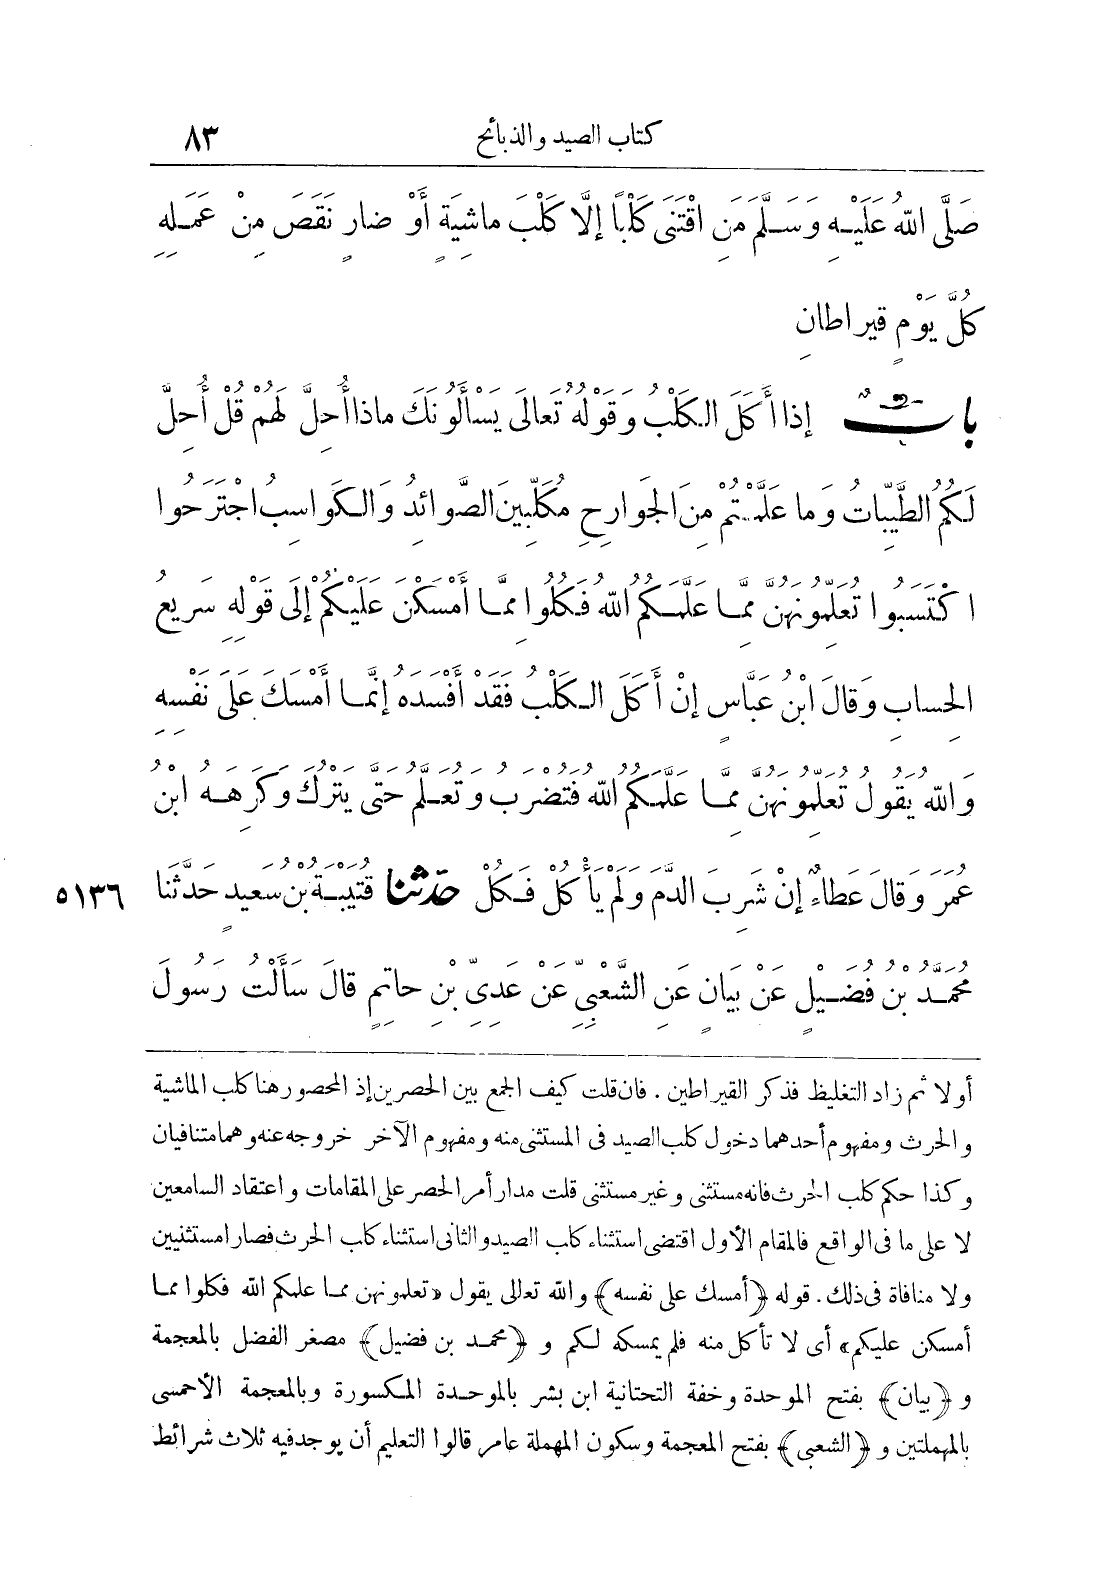 كتاب الصيد والذبائح ٨٣
صَلَّى اللَّهُ عَلَيْهِ وَسَلَّمَ مَنِ اقْتَنَى كَلْبًا إلَّا كَلْبَ ماشِيَةٍ أَوْ ضارٍ نَقَصَ مِنْ عَمَلِهِ
كُلَّ يَوْمٍ قيراطانِ
بابٌ إذا أَكَلَ الكَلْبُ وَقَوْلُهُ تَعالَى يَسْأَلُونَكَ ماذا أُحِلَّ لَهُمْ قُلْ أُحِلَّ
لَكُمُ الطَّيِّباتُ وَما عَلَّمْتُمْ مِنَ الجَوارِحِ مُكَلِّبِينَ الصَّوائِدُ وَالكَواسِبُ اجْتَرَحُوا
اكْتَسَبُوا تُعَلِّمُونَهُنَّ مِمَّا عَلَّمَكُمُ اللَّهُ فَكُلُوا مِمَّا أَمْسَكْنَ عَلَيْكُمْ إلَى قَوْلِهِ سَرِيعُ
الحِسابِ وَقالَ ابْنُ عَبَّاسٍ إنْ أَكَلَ الكَلْبُ فَقَدْ أَفْسَدَهُ إنَّما أَمْسَكَ عَلَى نَفْسِهِ
وَاللَّهُ يَقُولُ تُعَلِّمُونَهُنَّ مِمَّا عَلَّمَكُمُ اللَّهُ فَتُضْرَبُ وَتُعَلَّمُ حَتَّى يَتْرُكَ وَكَرِهَهُ ابْنُ
عُمَرَ وَقالَ عَطاءٌ إنْ شَرِبَ الدَّمَ وَلَمْ يَأْكُلْ فَكُلْ حدثنا قُتَيْبَةُ بْنُ سَعِيدٍ حَدَّثَنا ٥١٣٦
مُحَمَّدُ بْنُ فُضَيْلٍ عَنْ بَيانٍ عَنِ الشَّعْبِيِّ عَنْ عَدِيِّ بْنِ حاتِمٍ قالَ سَأَلْتُ رَسُولَ
أولا ثم زاد التغليظ فذكر القيراطين . فان قلت كيف الجمع بين الحصرين إذ المحصور هنا كلب الماشية
والحرث ومفهوم أحدهما دخول كلب الصيد فى المستثنى منه ومفهوم الآخر خروجه عنه وهما متنافيان
وكذا حكم كلب الحرث فانه مستثنى وغير مستثنى قلت مدار أمر الحصر على المقامات واعتقاد السامعين
لا على ما فى الواقع فالمقام الأول اقتضى استثناء كلب الصيد والثانى استثناء كلب الحرث فصارا مستثنيين
ولا منافاة فى ذلك . قوله ﴿أمسك على نفسه﴾ والله تعالى يقول «تعلمونهن مما علمكم الله فكلوا مما
أمسكن عليكم» أى لا تأكل منه فلم يمسكه لكم و ﴿محمد بن فضيل﴾ مصغر الفضل بالمعجمة
و ﴿بيان﴾ بفتح الموحدة وخفة التحتانية ابن بشر بالموحدة المكسورة وبالمعجمة الأحمسى
بالمهملتين و ﴿الشعبى﴾ بفتح المعجمة وسكون المهملة عامر قالوا التعليم أن يوجد فيه ثلاث شرائط